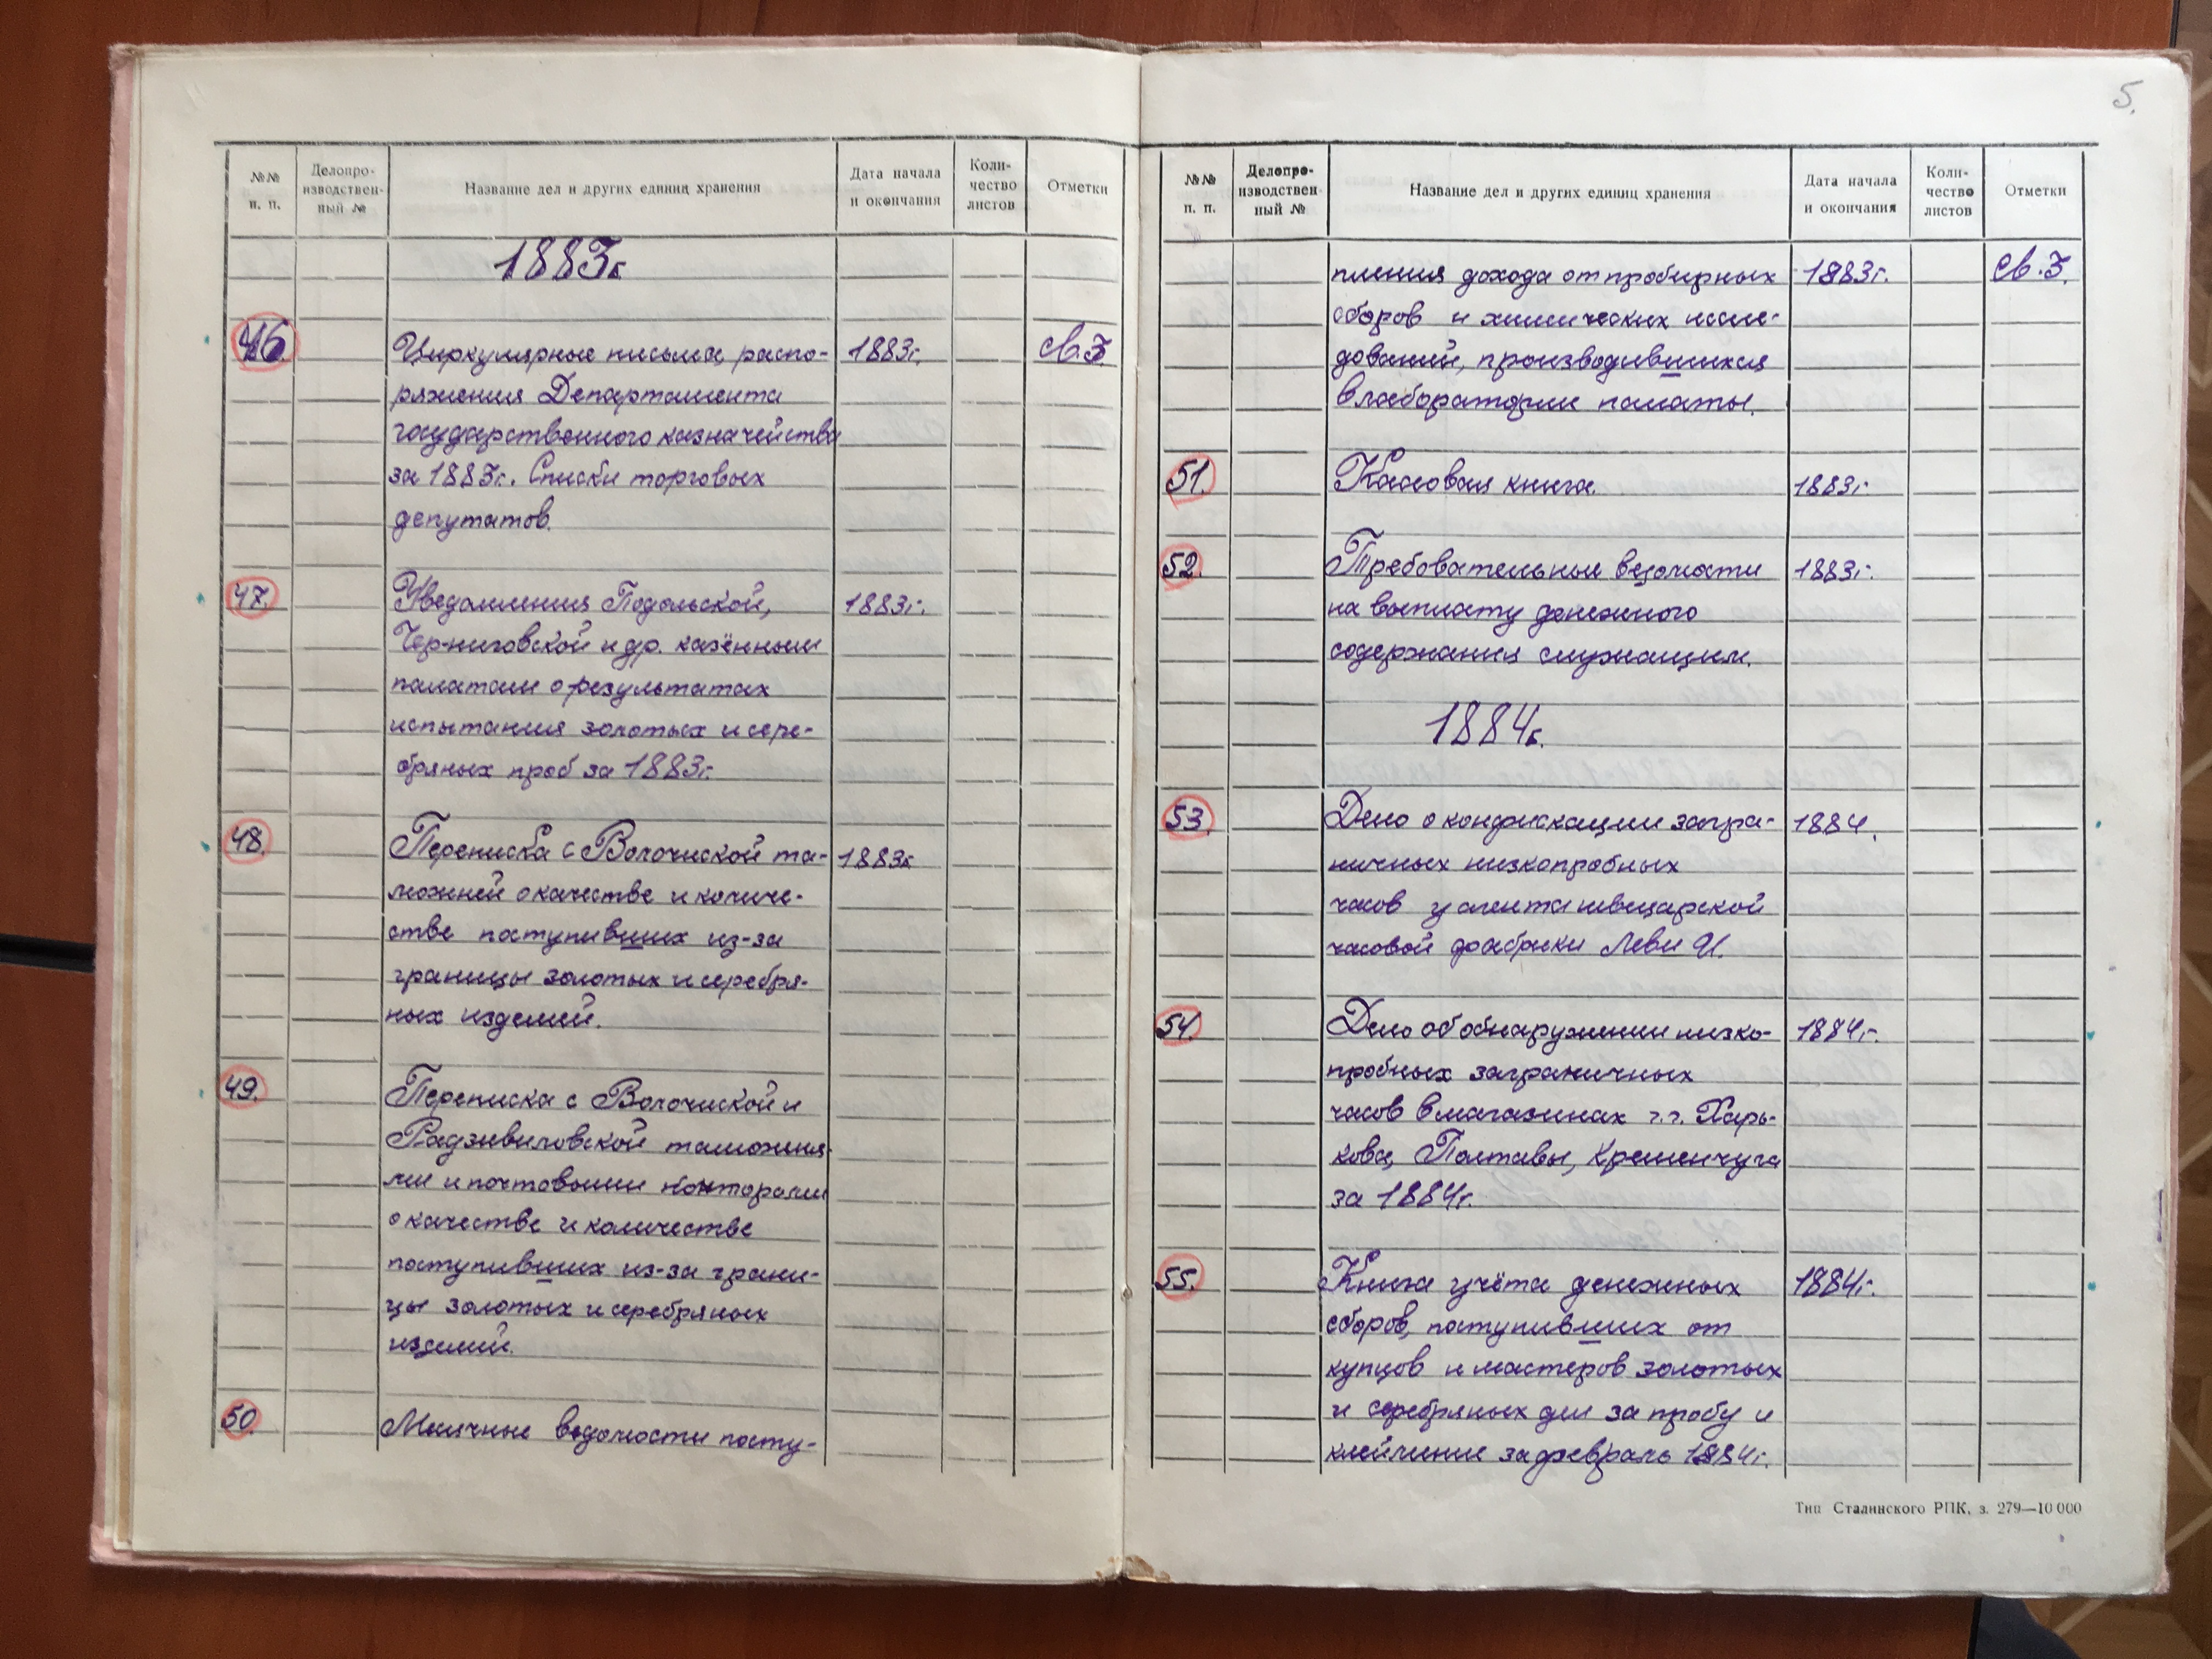 №№ п. п.
Делопро-
изводствен-
ный №
Название дел и других единиц хранения
Дата начала
и окончания
Коли-
чество
листов
Отметки
1883г.
46. Циркулярные письма, распо- 1883г. св.3
ряжения Департамента
государственного казначейства
за 1883г. Списки торговых
депутатов.
47. Уведомления Подольской, 1883г.
Черниговской и др. казённым
палатам о результатах
испытания золотых и сере-
бряных проб за 1883г.
48. Переписка с Волочиской та- 1883г.
можней о качестве и количе-
стве поступивших из-за
границы золотых и серебря-
ных изделий.
49. Переписка с Волочиской и
Радзивиловской таможня-
ми и почтовыми конторами
о качестве и количестве
поступивших из-за грани-
цы золотых и серебряных
изделий.
50. Месячные ведомости посту-
5.
№№ п. п.
Делопро-
изводствен-
ный №
Название дел и других единиц хранения
Дата начала
и окончания
Коли-
чество
листов
Отметки
пления дохода от пробирных 1883г. св.3.
сборов и химических иссле-
дований, производившихся
в лаборатории палаты.
51. Кассовая книга. 1883г.
52. Требовательные ведомости 1883г.
на выплату денежного
содержания служащим.
1884г.
53. Дело о конфискации загра- 1884.
ничных низкопробных
часов у агента швецарской
часовой фабрики Леви И.
54. Дело об обнаружении низко- 1884г.
пробных заграничных
часов в магазинах г.г. Харь-
кова, Полтавы, Кременчуга
за 1884г.
55. Книга учёта денежных 1884г.
сборов, поступивших от
купцов и мастеров золотых
и серебряных дел за пробу и
клеймение за февраль 1884г.
Тип Сталинского РПК, з. 279—10 000